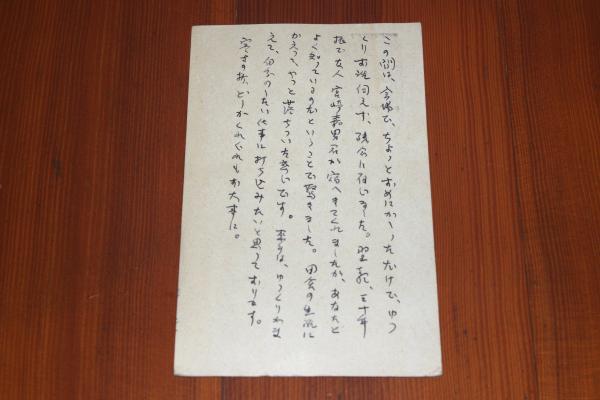 この間は、会場で、ちょっとおめにかゝっただけで、ゆっ
くりお話伺えず、残念に存じました。翌朝、三十年
振で友人宮崎 男君が宿へきてくれましたが、あなたを
よく知っているのだということで驚きました。田舎の生活に
かえって、やっと落ちついた感じです。来年は、ゆっくりかま
えて、自分のしたい仕事に打ち込みたいと思っております。
寒さの折、どうかくれぐれもお大事に。